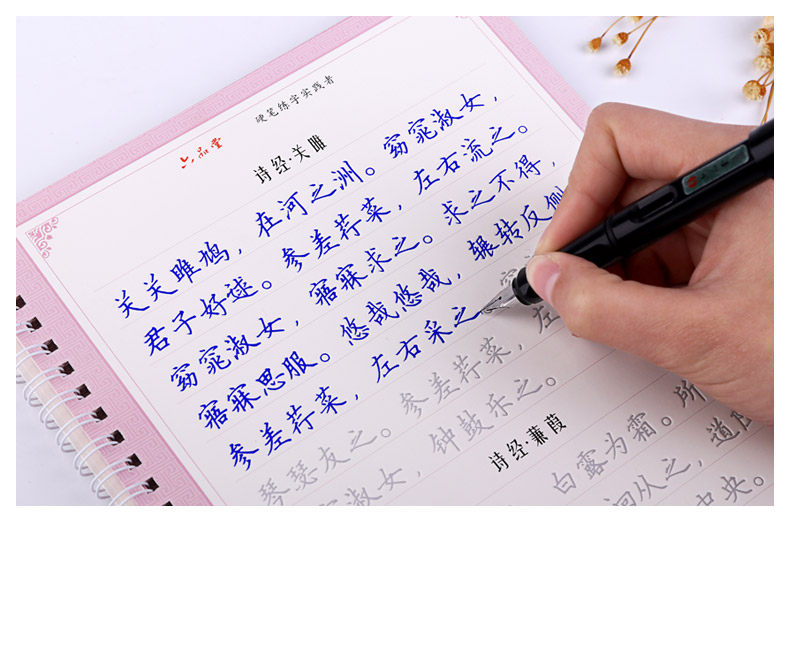 六品堂
硬笔练字实践者
诗经·关雎
关关雎鸠，在河之洲。窈窕淑女，
君子好逑。参差荇菜，左右流之。
窈窕淑女，寤寐求之。求之不得，
寤寐思服。悠哉悠哉，辗转反侧
参差荇菜，左右采之 窈
琴瑟友之。参差荇菜，左
淑女，钟鼓乐之。
诗经·蒹葭
白露为霜。所
洄从之，道阻
中央。